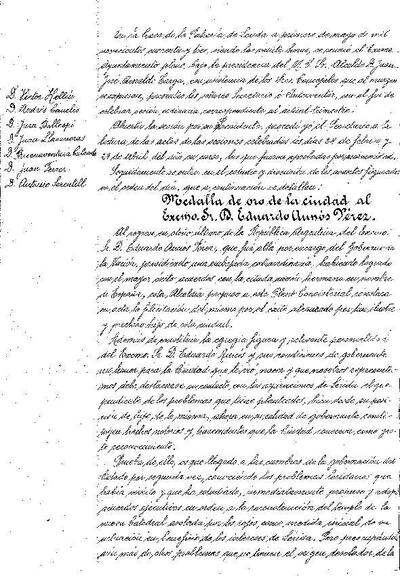 D. Víctor Hellín
D. Andrés
D. Juan Ballespí
D. Juan Llaveneras
D. Buenaventura
D. Juan Ferrer
D. Antonio Sarutell
En la Casa de la Paheria de Lérida a primero de mayo de mil
novecientos cuarenta y tres, siendo las veinte horas, se reunió el Excmo.
Ayuntamiento pleno, bajo la presidencia del M. I. Sr. Alcalde D. Juan
José Arnaldi Targa, con asistencia de los Sres. Concejales que al margen
se expresan, presentes los señores Secretario e Interventor, con el fin de
celebrar sesión ordinaria correspondiente al actual trimestre.
Abierta la sesión por la Presidencia, procedió yo el Secretario a la
lectura de las actas de las sesiones celebradas los días 24 de febrero y
29 de abril del año en curso, las que fueron aprobadas por unanimidad.
Seguidamente se entra en el estudio y discusión de los asuntos figurados
en el orden del día, que a continuación se detallan:
Medalla de oro de la ciudad al
Excmo. Sr. D. Eduardo Aunós Pérez.
Al regreso, en último de la República Argentina del Excmo.
Sr. D. Eduardo Aunós Pérez, que fué allí por encargo del Gobierno de
la Nación, presidiendo una embajada extraordinaria, habiendo logrado
con el mayor éxito acuerdos con la citada nación hermana en nombre
de España, esta Alcaldía propuso a este Pleno Consistorial, constara
en acta la felicitación del mismo por el éxito alcanzado por tan ilustre
y preclaro hijo de esta ciudad.
Además de constituir la egregia figura y relevante personalidad
del Excmo. Sr. D. Eduardo Aunós y sus condiciones de gobernante
un honor para la Ciudad que le vio nacer y que nosotros representa-
mos, debe destacarse su conducta, con las aspiraciones de Lérida
de los problemas que tiene planteados, bien desde su po-
sición de hijo de la misma, ahora en su calidad de gobernante, consti-
tuyen hechos notorios y trascendentes que la Ciudad conserva como
reconocimiento.
Prueba de ello, es que llegado a las cumbres de la gobernación del
Estado por segunda vez, conociendo los problemas leridanos que
había vivido y que ha estudiado, inmediatamente promueve y adopta
acuerdos ejecutivos en orden a la reconstrucción del templo de la
nueva Catedral asolada por los rojos, como medida inicial de su
actuación en beneficio de los intereses de Lérida. Pero
aún más, de otros problemas que no tienen el origen desolador de la